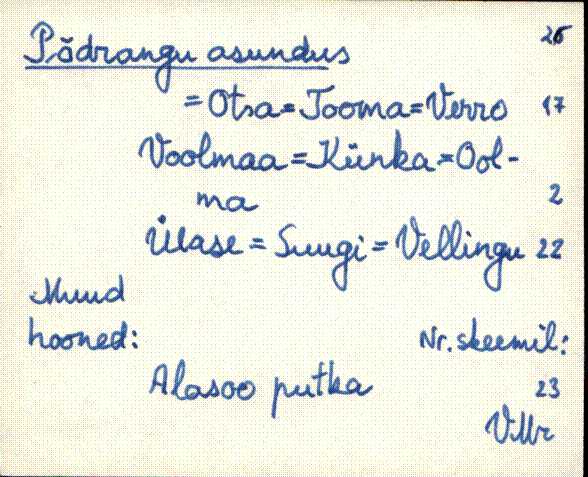 26
Pädrangu asundus
=Otsa=Tooma=Verro 17
Voolmaa=Künka=Ool-
ma 2
Ülase=Suugi=Vellingu 22
Muud
hooned: Nr. skeemil:
Alasoo putka 23
VMr